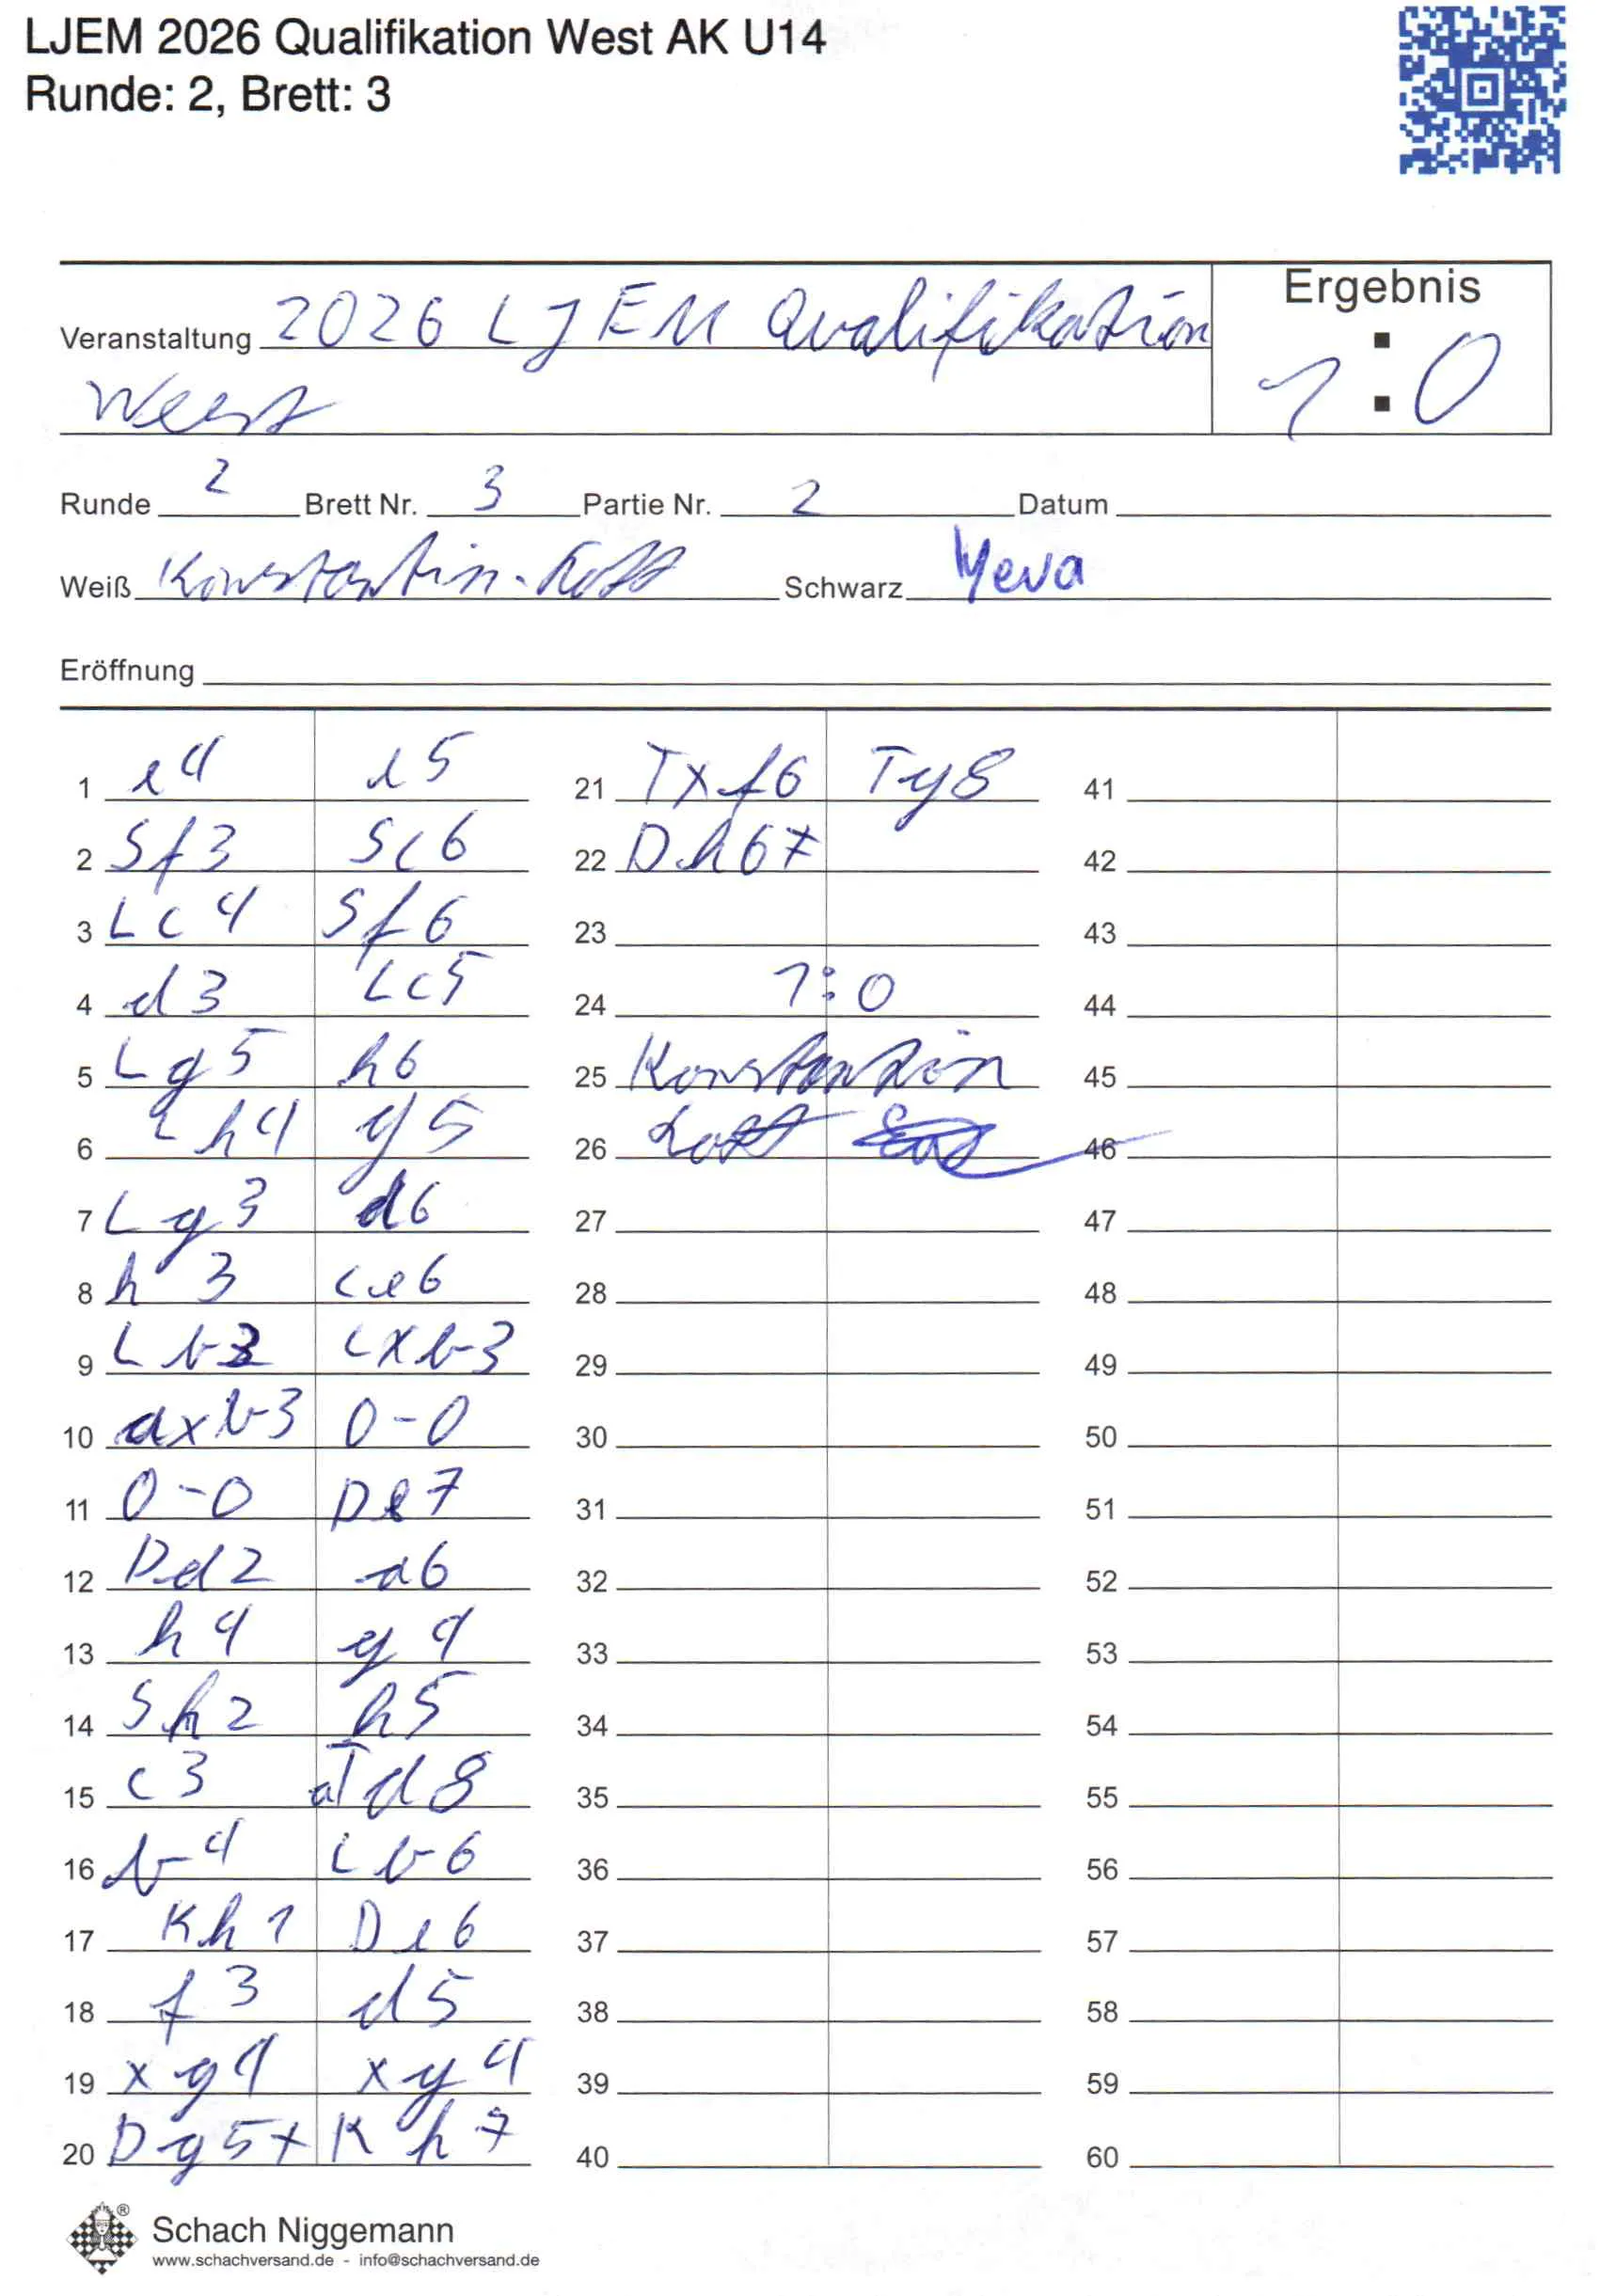 LJEM 2026 Qualifikation West AK U14
Runde: 2, Brett: 3
Ergebnis
Veranstaltung 2026 LJEM Qualifikation
West
1:0
Runde 2 Brett Nr. 3 Partie Nr. 2 Datum
Weiß Konstantin Schwarz Yeva
Eröffnung
1 e4 e5 21 Txf6 Tg8 41
2 Sf3 Sc6 22 Dh6# 42
3 Lc4 Sf6 23 43
4 d3 Lc5 24 1:0 44
5 Lg5 h6 25 Konstantin 45
6 Lh4 g5 26 46
7 Lg3 d6 27 47
8 h3 Le6 28 48
9 Lb3 Lxb3 29 49
10 axb3 0-0 30 50
11 0-0 De7 31 51
12 Dd2 a6 32 52
13 h4 g4 33 53
14 Sh2 h5 34 54
15 c3 aTd8 35 55
16 b4 Lb6 36 56
17 Kh1 De6 37 57
18 f3 d5 38 58
19 xg4 xg4 39 59
20 Dg5+ Kh7 40 60
®
Schach Niggemann
www.schachversand.de - info@schachversand.de